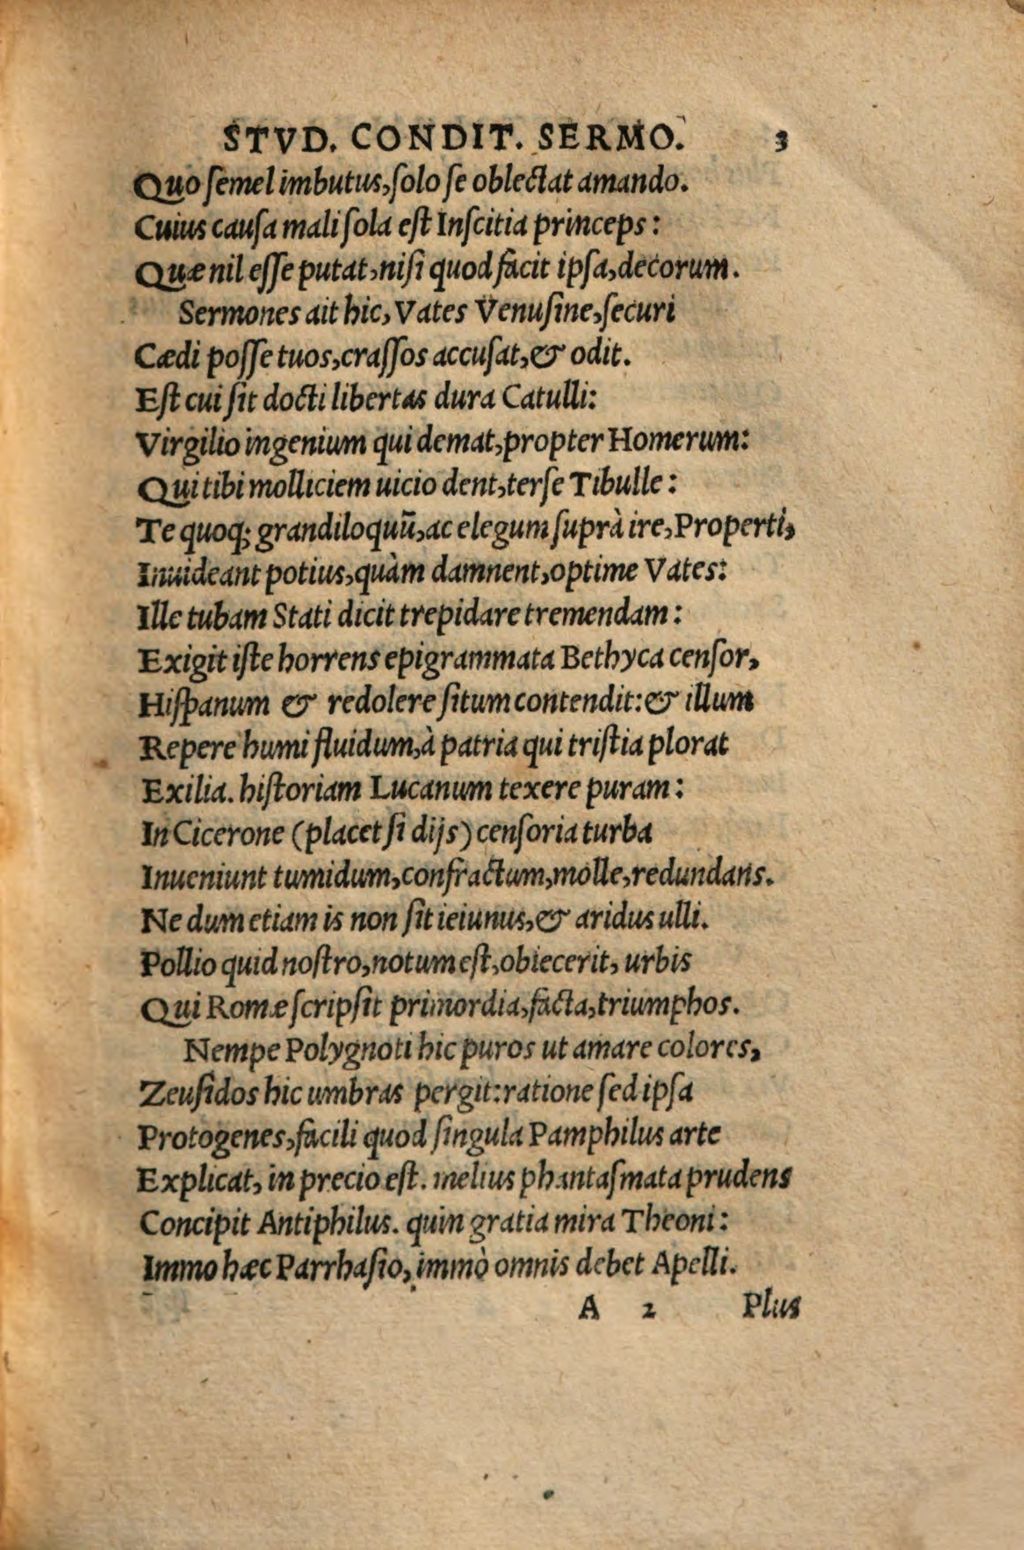 STVD. CONDIT. SERMO. 3
Quo ſemel imbutus, ſolo ſe oblectat amando.
Cuius cauſa mali ſola eſt Inſcitia princeps:
Quæ nil eſſe putat, niſi quod facit ipſa, decorum.
Sermones ait hic, Vates Venuſine, ſecuri
Cædi poſſe tuos, craſſos accuſat, & odit.
Eſt cui ſit docti libertas dura Catulli:
Virgilio ingenium qui demat, propter Homerum:
Qui tibi molliciem uicio dent, terſe Tibulle:
Te quoq; grandiloquũ, ac elegum ſuprà ire, Properti,
Inuideant potius, quàm damnent, optime Vates:
Ille tubam Stati dicit trepidare tremendam:
Exigit iſte horrens epigrammata Bethyca cenſor,
Hiſpanum & redolere ſitum contendit: & illum
Repere humi fluidum, à patria qui triſtia plorat
Exilia. hiſtoriam Lucanum texere puram:
In Cicerone (placet ſi dijs) cenſoria turba
Inueniunt tumidum, confractum, molle, redundans.
Ne dum etiam is non ſit ieiunus, & aridus ulli.
Pollio quid noſtro, notum eſt, obiecerit, urbis
Qui Romæ ſcripſit primordia, facta, triumphos.
Nempe Polygnoti hic puros ut amare colores,
Zeuſidos hic umbras pergit: ratione ſed ipſa
Protogenes, facili quod ſingula Pamphilus arte
Explicat, in precio eſt. melius phantaſmata prudens
Concipit Antiphilus. quin gratia mira Theoni:
Immo hæc Parrhaſio, immò omnis debet Apelli.
A 2 Plus